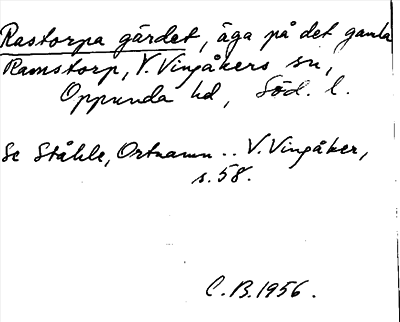 Rastorpa gärdet, äga på det gamla
Ramstorp, V. Vingåkers sn,
Oppunda hd, Söd. l.
Se Ståhle, Ortnamn .. V. Vingåker,
s. 58.
C. B. 1956.